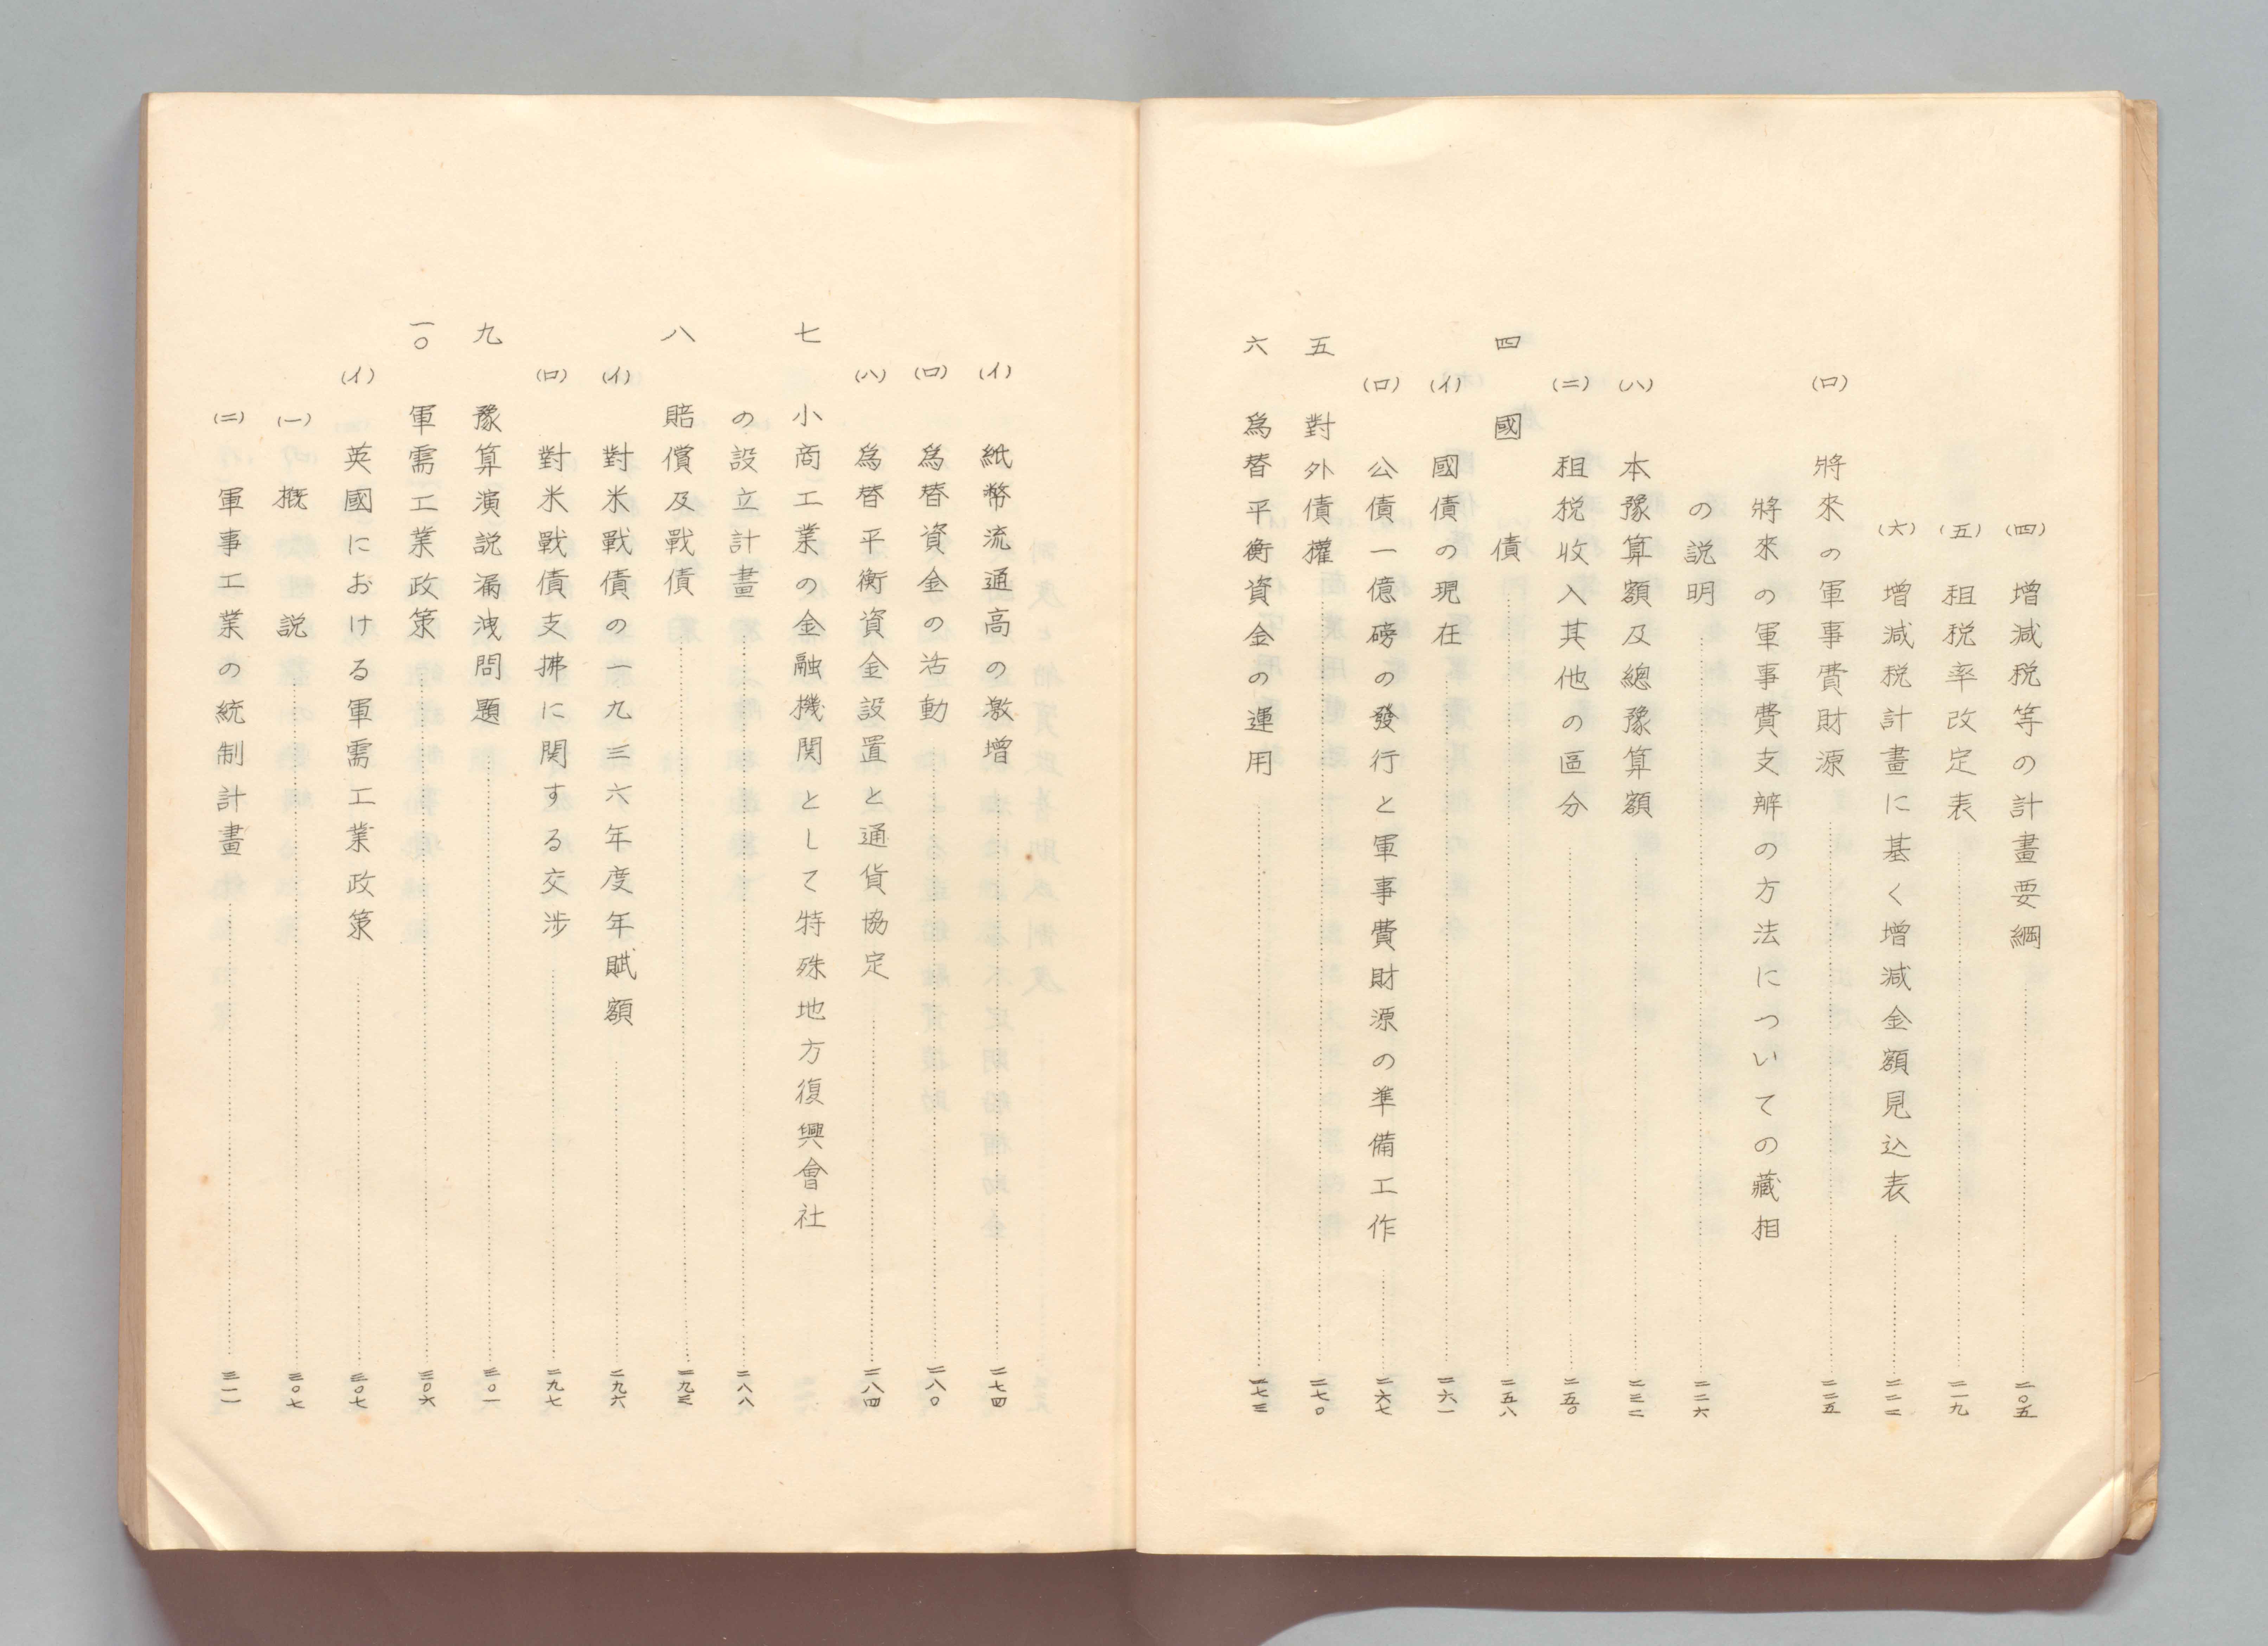 (四) 增減税等の計畫要綱……二〇五
(五) 租税率改定表……二一九
(六) 增減税計畫に基く增減金額見込表……二二二
(ロ) 將來の軍事費財源……二二五
將來の軍事費支辨の方法についての藏相
の説明……二二六
(ハ) 本豫算額及總豫算額……二三二
(ニ) 租税收入其他の區分……二五〇
四 國債……二五八
(イ) 國債の現在……二六一
(ロ) 公債一億磅の發行と軍事費財源の準備工作……二六七
五 對外債權……二七〇
六 爲替平衡資金の運用……二七三
(イ) 紙幣流通高の激增……二七四
(ロ) 爲替資金の活動……二八〇
(ハ) 爲替平衡資金設置と通貨協定……二八四
七 小商工業の金融機関として特殊地方復興會社
の設立計畫……二八八
八 賠償及戰債……二九三
(イ) 對米戰債の一九三六年度年賦額……二九六
(ロ) 對米戰債支拂に関する交渉……二九七
九 豫算演説漏洩問題……三〇一
一〇 軍需工業政策……三〇六
(イ) 英國における軍需工業政策……三〇七
(一) 概説……三〇七
(二) 軍事工業の統制計畫……三一一